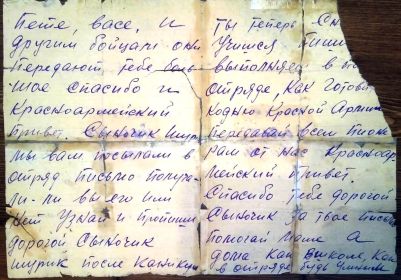 Пете, васе, и
другим бойцам они
передают тебе боль
шое спасибо и
красноармейский
привет. Сыночик шурик
мы вам посылали в
отряд письмо получи-
ли-ли вы его или
нет узнай и пропиши
дорогой сыночик
шурик после каникул
ты теперь
учишся пиши
выполняеш в
отряде, как готови
Красной Армии
передавай всем пионе
рам от нас Красноар
мейский привет.
Спасибо тебе дорогой
сыночик за твое письмо
помогай мама а
дома как в школе, как
в отряде будь умным